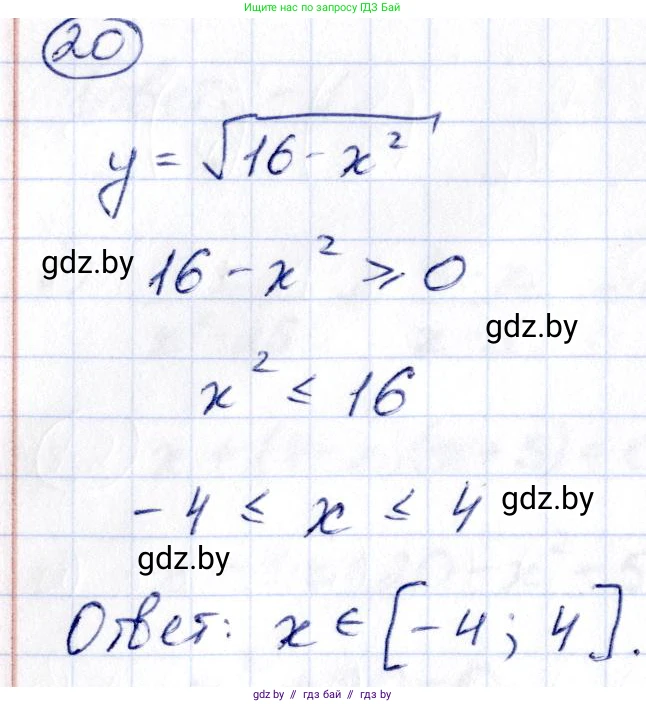 Ищите нас по запросу ГДЗ Бай
20
y = √(16 - x²)
gdz.by 16 - x² ⩾ 0
gdz.by
x² ≤ 16
-4 ≤ x ≤ 4 gdz.by
gdz.by
Ответ: x ∈ [-4; 4].
gdz by // гдз бай // гдз by